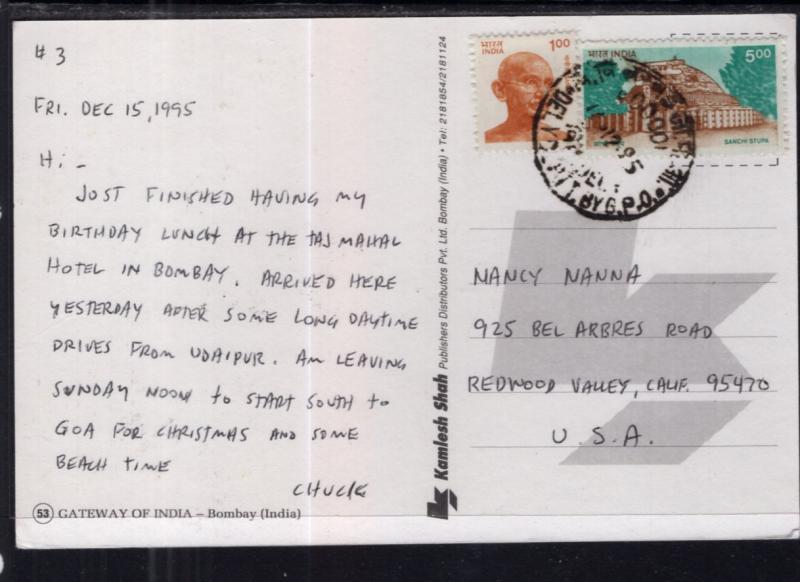 # 3
FRI. DEC 15, 1995
Hi -
JUST FINISHED HAVING MY
BIRTHDAY LUNCH AT THE TAJ MAHAL
HOTEL IN BOMBAY. ARRIVED HERE
YESTERDAY AFTER SOME LONG DAYTIME
DRIVES FROM UDAIPUR. AM LEAVING
SUNDAY NOON to START SOUTH to
GOA FOR CHRISTMAS AND SOME
BEACH TIME
CHUCK
53 GATEWAY OF INDIA – Bombay (India)
Kamlesh Shah Publishers Distributors Pvt. Ltd. Bombay (India) • Tel: 2181854/2181124
भारत
INDIA
1.00
भारत INDIA
5.00
SANCHI STUPA
G.P.O.
NANCY NANNA
925 BEL ARBRES ROAD
REDWOOD VALLEY, CALIF. 95470
U.S.A.